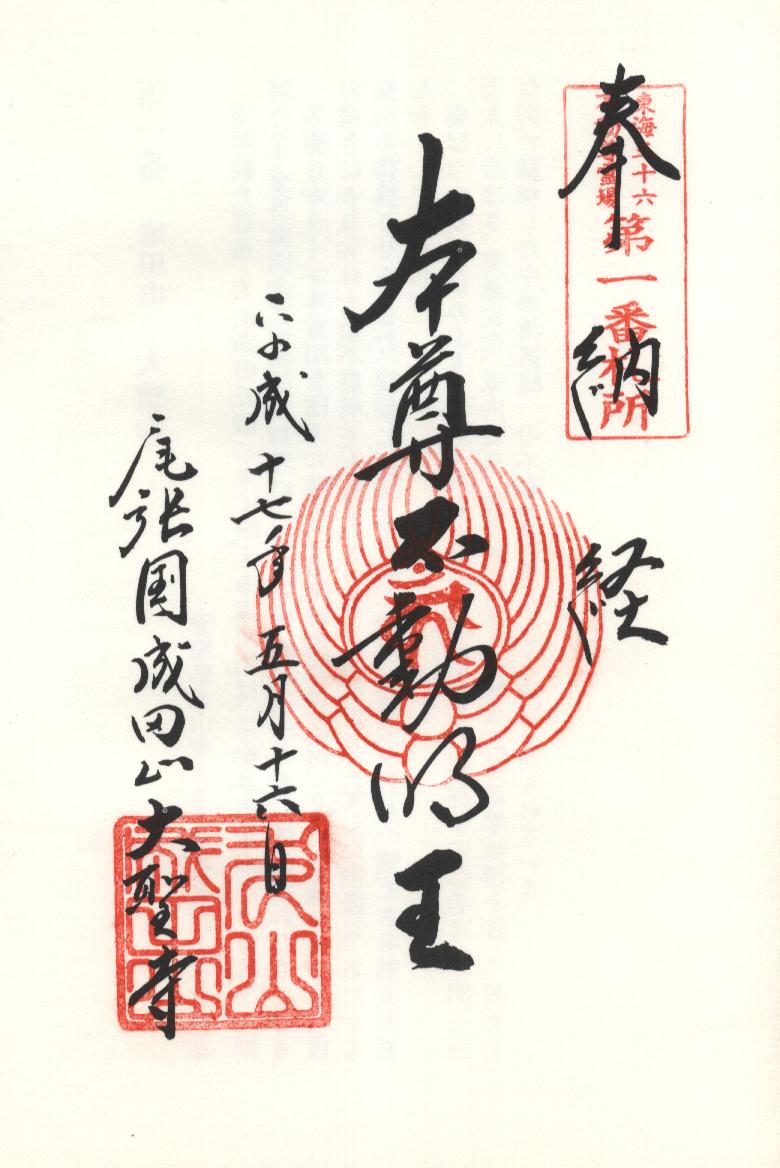 奉納経
東海三十六
不動尊霊場
第一番札所
本尊不動明王
平成十七年五月十六日
尾張国成田山大聖寺